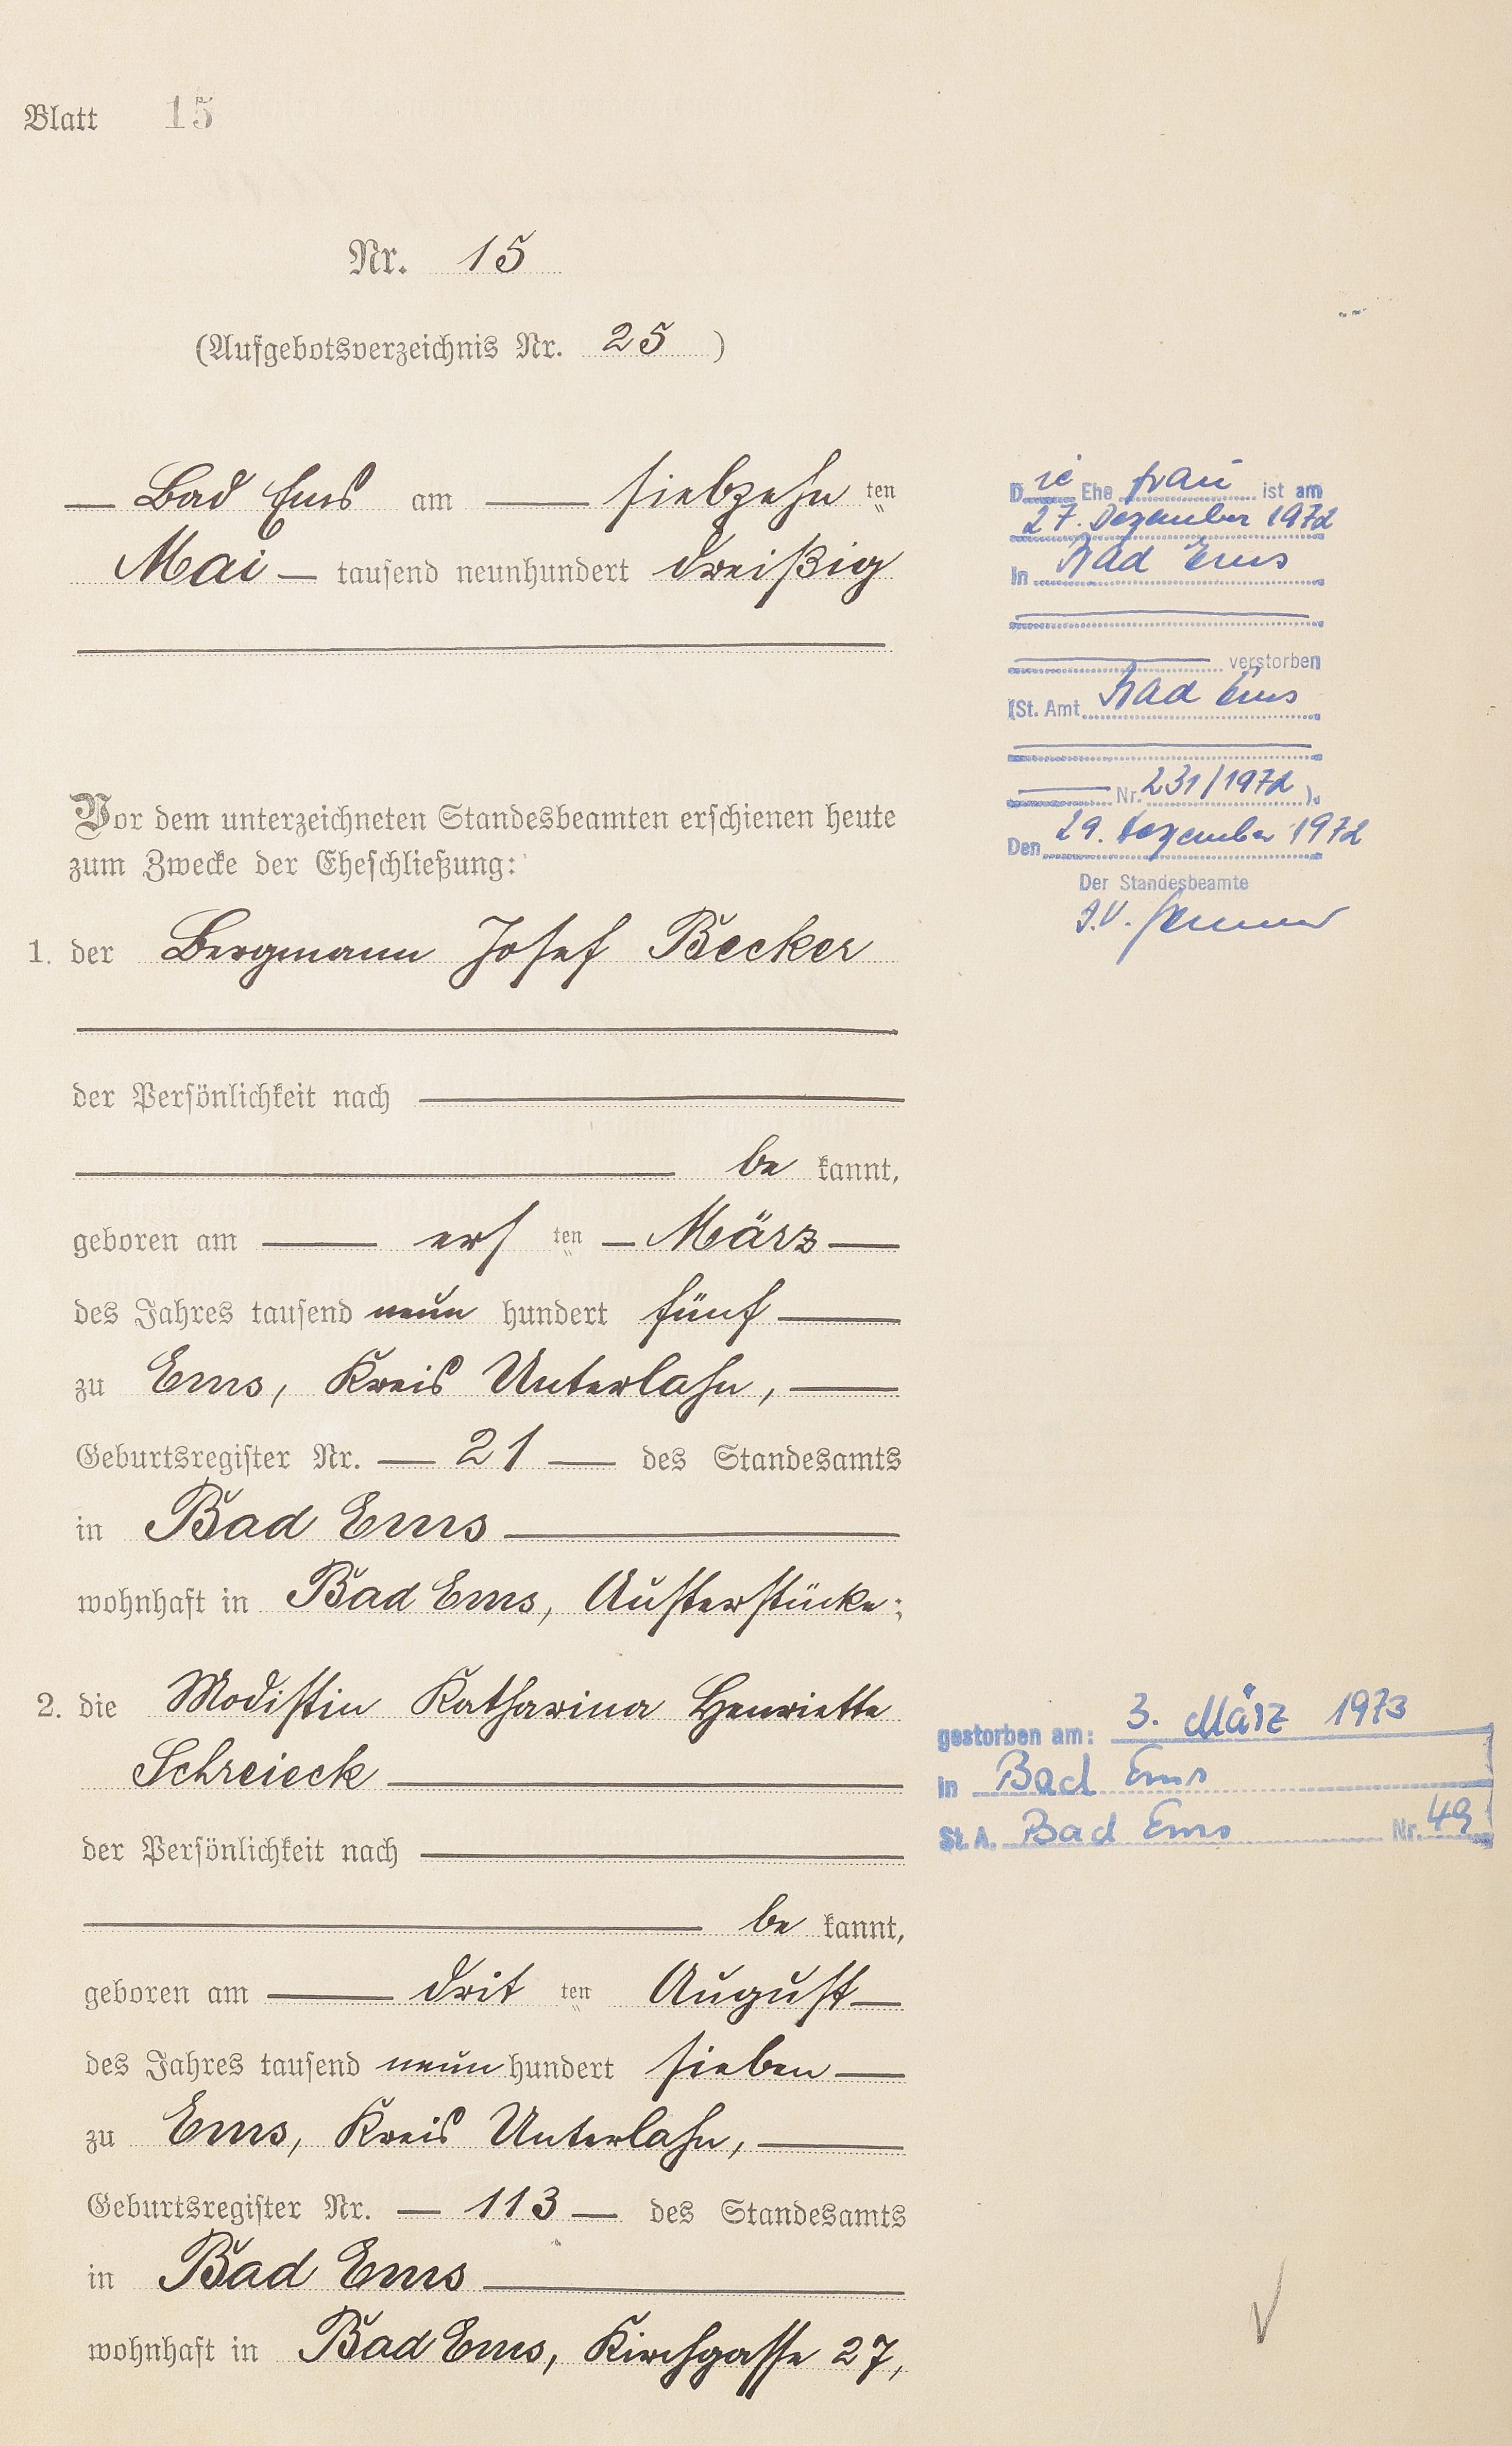 Blatt 15
Nr. 15
(Aufgebotsverzeichnis Nr. 25)
Bad Ems am siebzehn ten
Mai tausend neunhundert dreißig
Vor dem unterzeichneten Standesbeamten erschienen heute
zum Zwecke der Eheschließung:
1. der Bergmann Josef Becker
der Persönlichkeit nach
be kannt,
geboren am ers ten März
des Jahres tausend neun hundert fünf
zu Ems, Kreis Unterlahn,
Geburtsregister Nr. 21 des Standesamts
in Bad Ems
wohnhaft in Bad Ems, Austerstücke;
2. die Modistin Katharina Henriette
Schreieck
der Persönlichkeit nach
be kannt,
geboren am drit ten August
des Jahres tausend neun hundert sieben
zu Ems, Kreis Unterlahn,
Geburtsregister Nr. 113 des Standesamts
in Bad Ems
wohnhaft in Bad Ems, Kirchgasse 27,
Die Ehe frau ist am
27. Dezember 1972
in Bad Ems
verstorben
(St. Amt Bad Ems
Nr. 231/1972).
Den 29. Dezember 1972
Der Standesbeamte
I.V.
gestorben am: 3. März 1973
in Bad Ems
St. A. Bad Ems Nr. 49